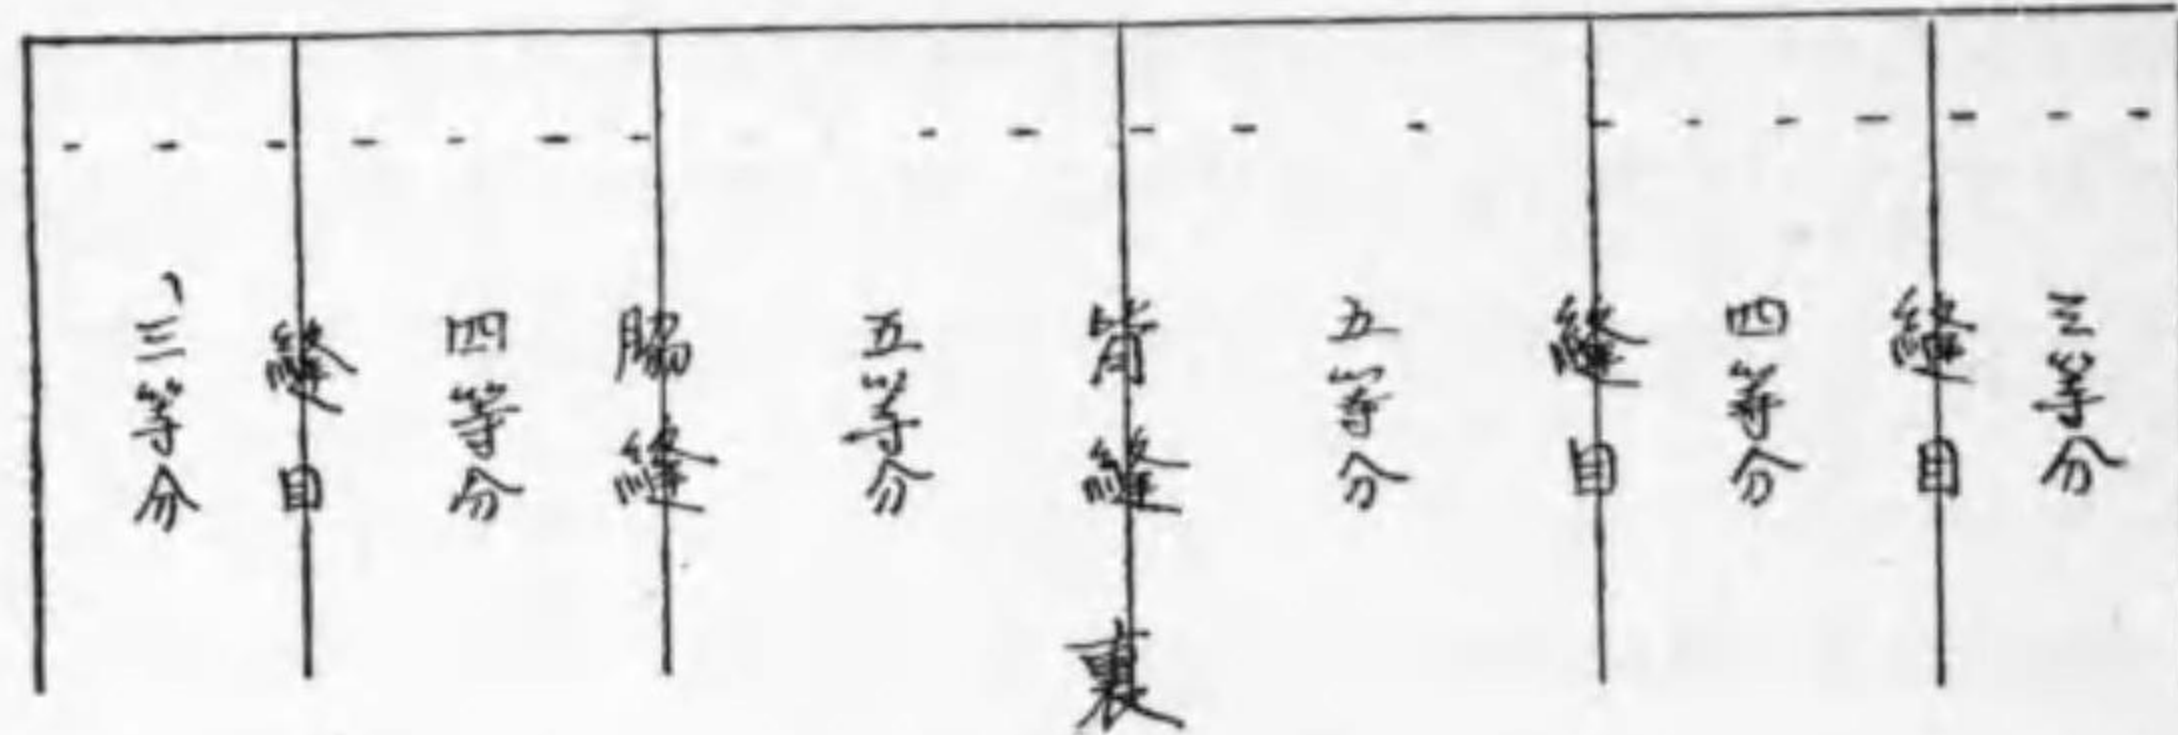 三等分
縫目
四等分
縫目
五等分
背縫
五等分
脇縫
四等分
縫目
三等分
裏